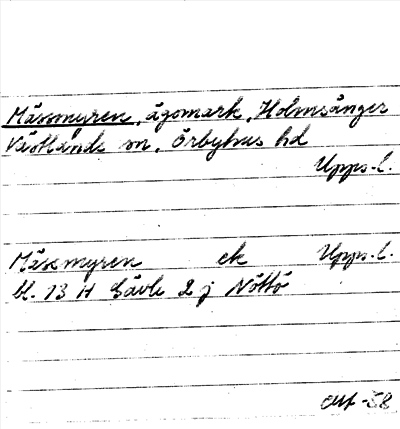 Mässmyren, ägomark, Holmsånger
Västlands sn, Örbyhus hd
Upps. l.
Mäsmyren ek Upps. l.
bl. 13 H Gävle 2 j Nöttö
-58